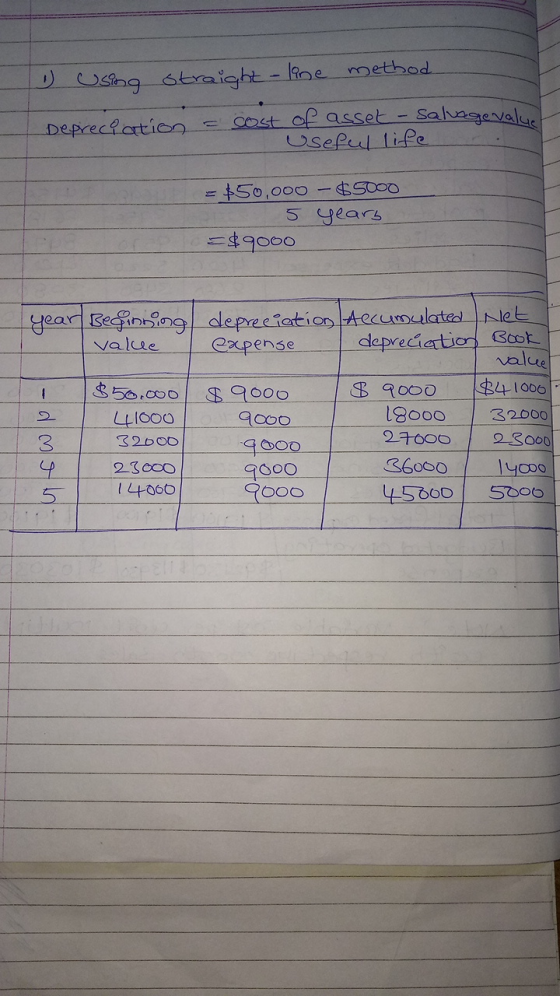 1) Using straight-line method
Depreciation = cost of asset - salvage value
Useful life
= $50,000 - $5000
5 years
= $9000
year Beginning value depreciation expense Accumulated depreciation Net Book value
1 $50,000 $ 9000 $ 9000 $41000
2 41000 9000 18000 32000
3 32000 9000 27000 23000
4 23000 9000 36000 14000
5 14000 9000 45000 5000